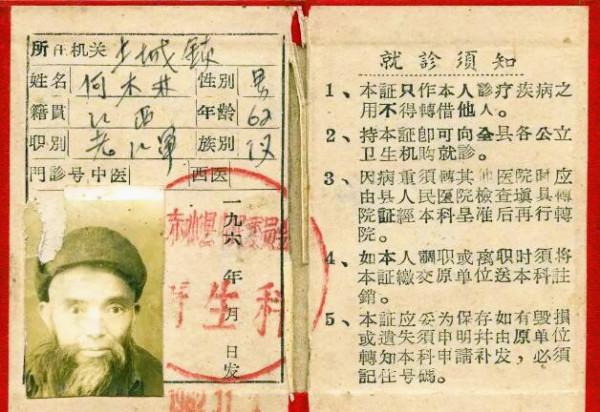 所在机关 土城鎮
姓名 何木林 性别 男
籍貫 江西 年龄 62
职别 老红軍 族别 汉
門診号 中医 西医
一九六 年 月 日发
生科
就診須知
1、本証只作本人診疗疾病之
用不得轉借他人。
2、持本証即可向全县各公立
卫生机购就診。
3、因病重須轉其他医院时应
由县人民医院檢查填具轉
院証經本科呈准后再行轉
院。
4、如本人調职或离职时须将
本証繳交原单位送本科註
銷。
5、本証应妥为保存如有毁損
或遺失須申明幷由原单位
轉知本科申請补发，必须
記住号碼。